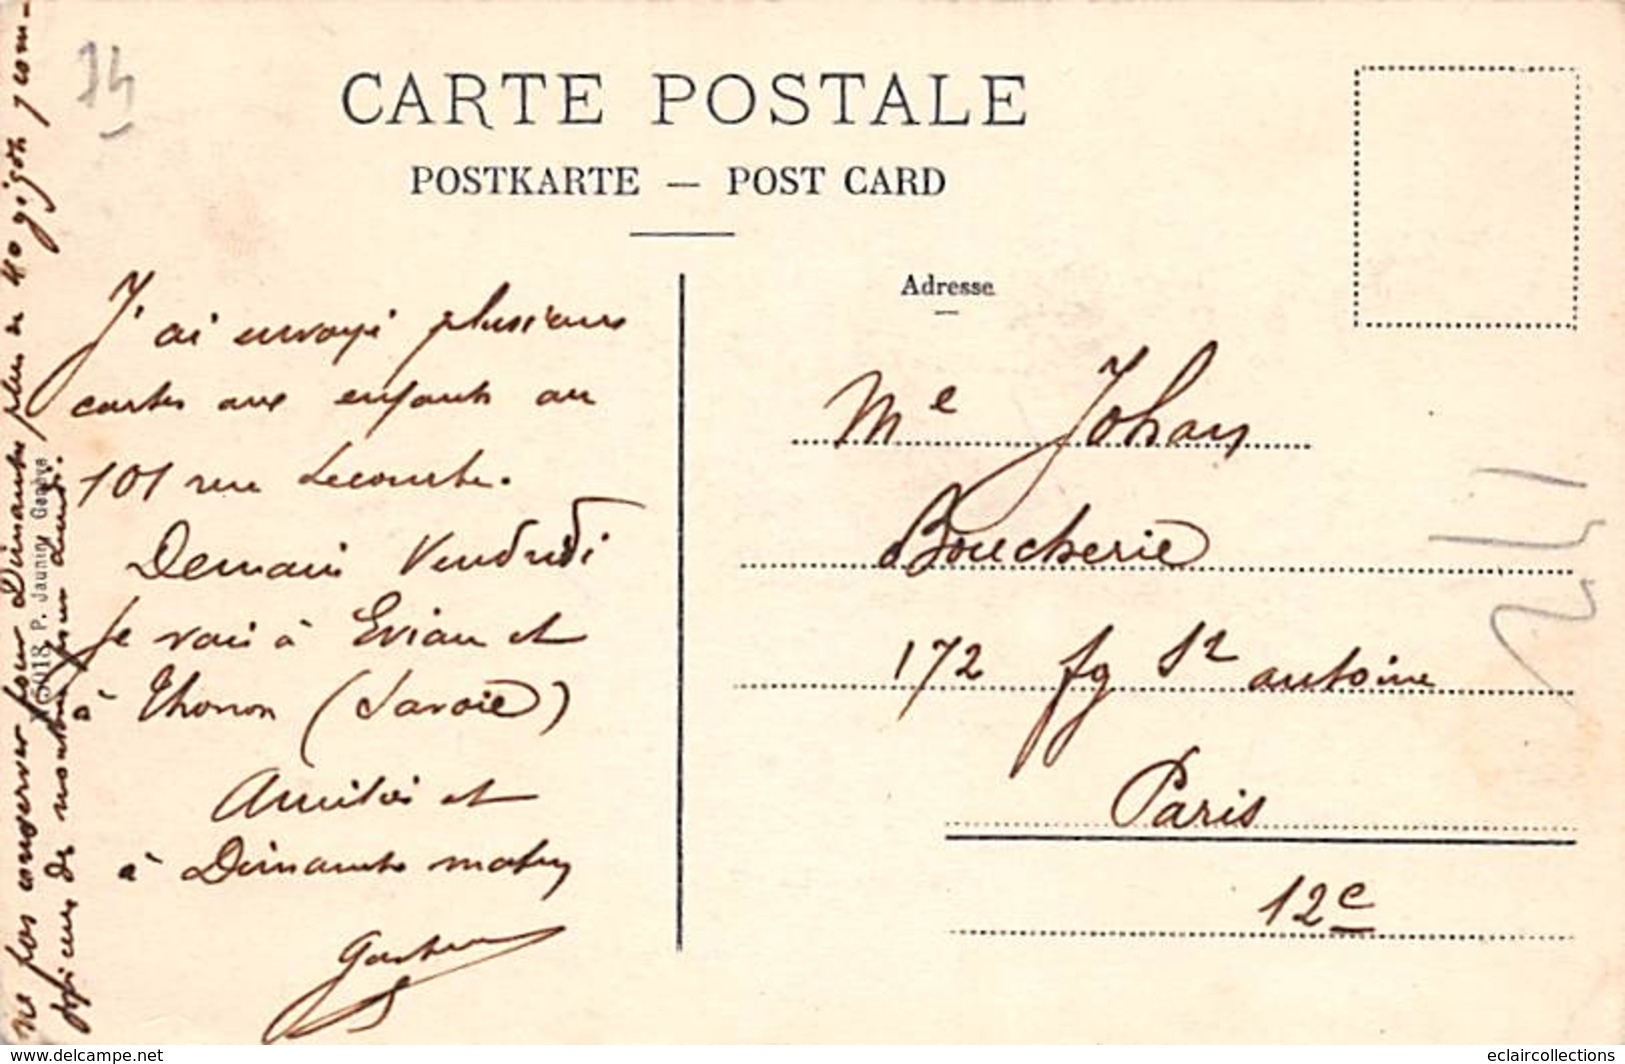 CARTE POSTALE
POSTKARTE — POST CARD
Adresse
J'ai envoyé plusieurs
cartes aux enfants au
101 rue Lecourbe.
Demain Vendredi
je vais à Evian et
à Thonon (Savoie)
Amitiés et
à Dimanche matin
Gaston
Me Johan
Boucherie
172 fg St antoine
Paris
12e
ne pas conserver pour Dimanche plus de 40 gigots y com-
de mouton pour Lundi.
5018 P. Jaunin, Genève
241
www.delcampe.net
eclaircollections